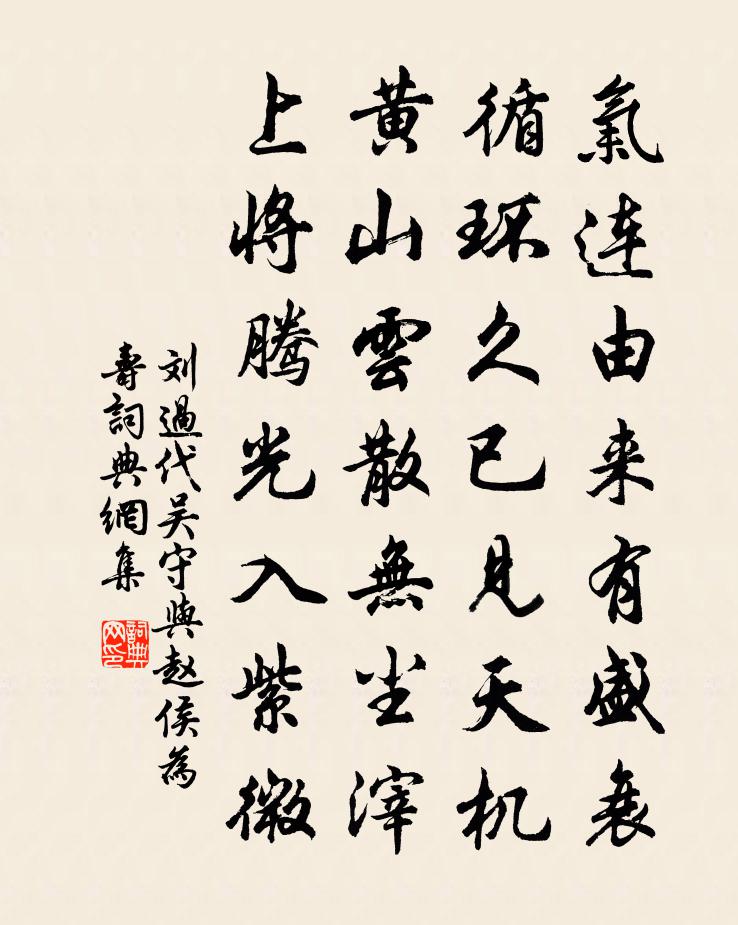 氣連由来有盛衰
循环久已見天机
黄山雲散無尘滓
上将腾光入紫微
刘過代吴守與赵侯為
壽詞典網集
詞典
网印